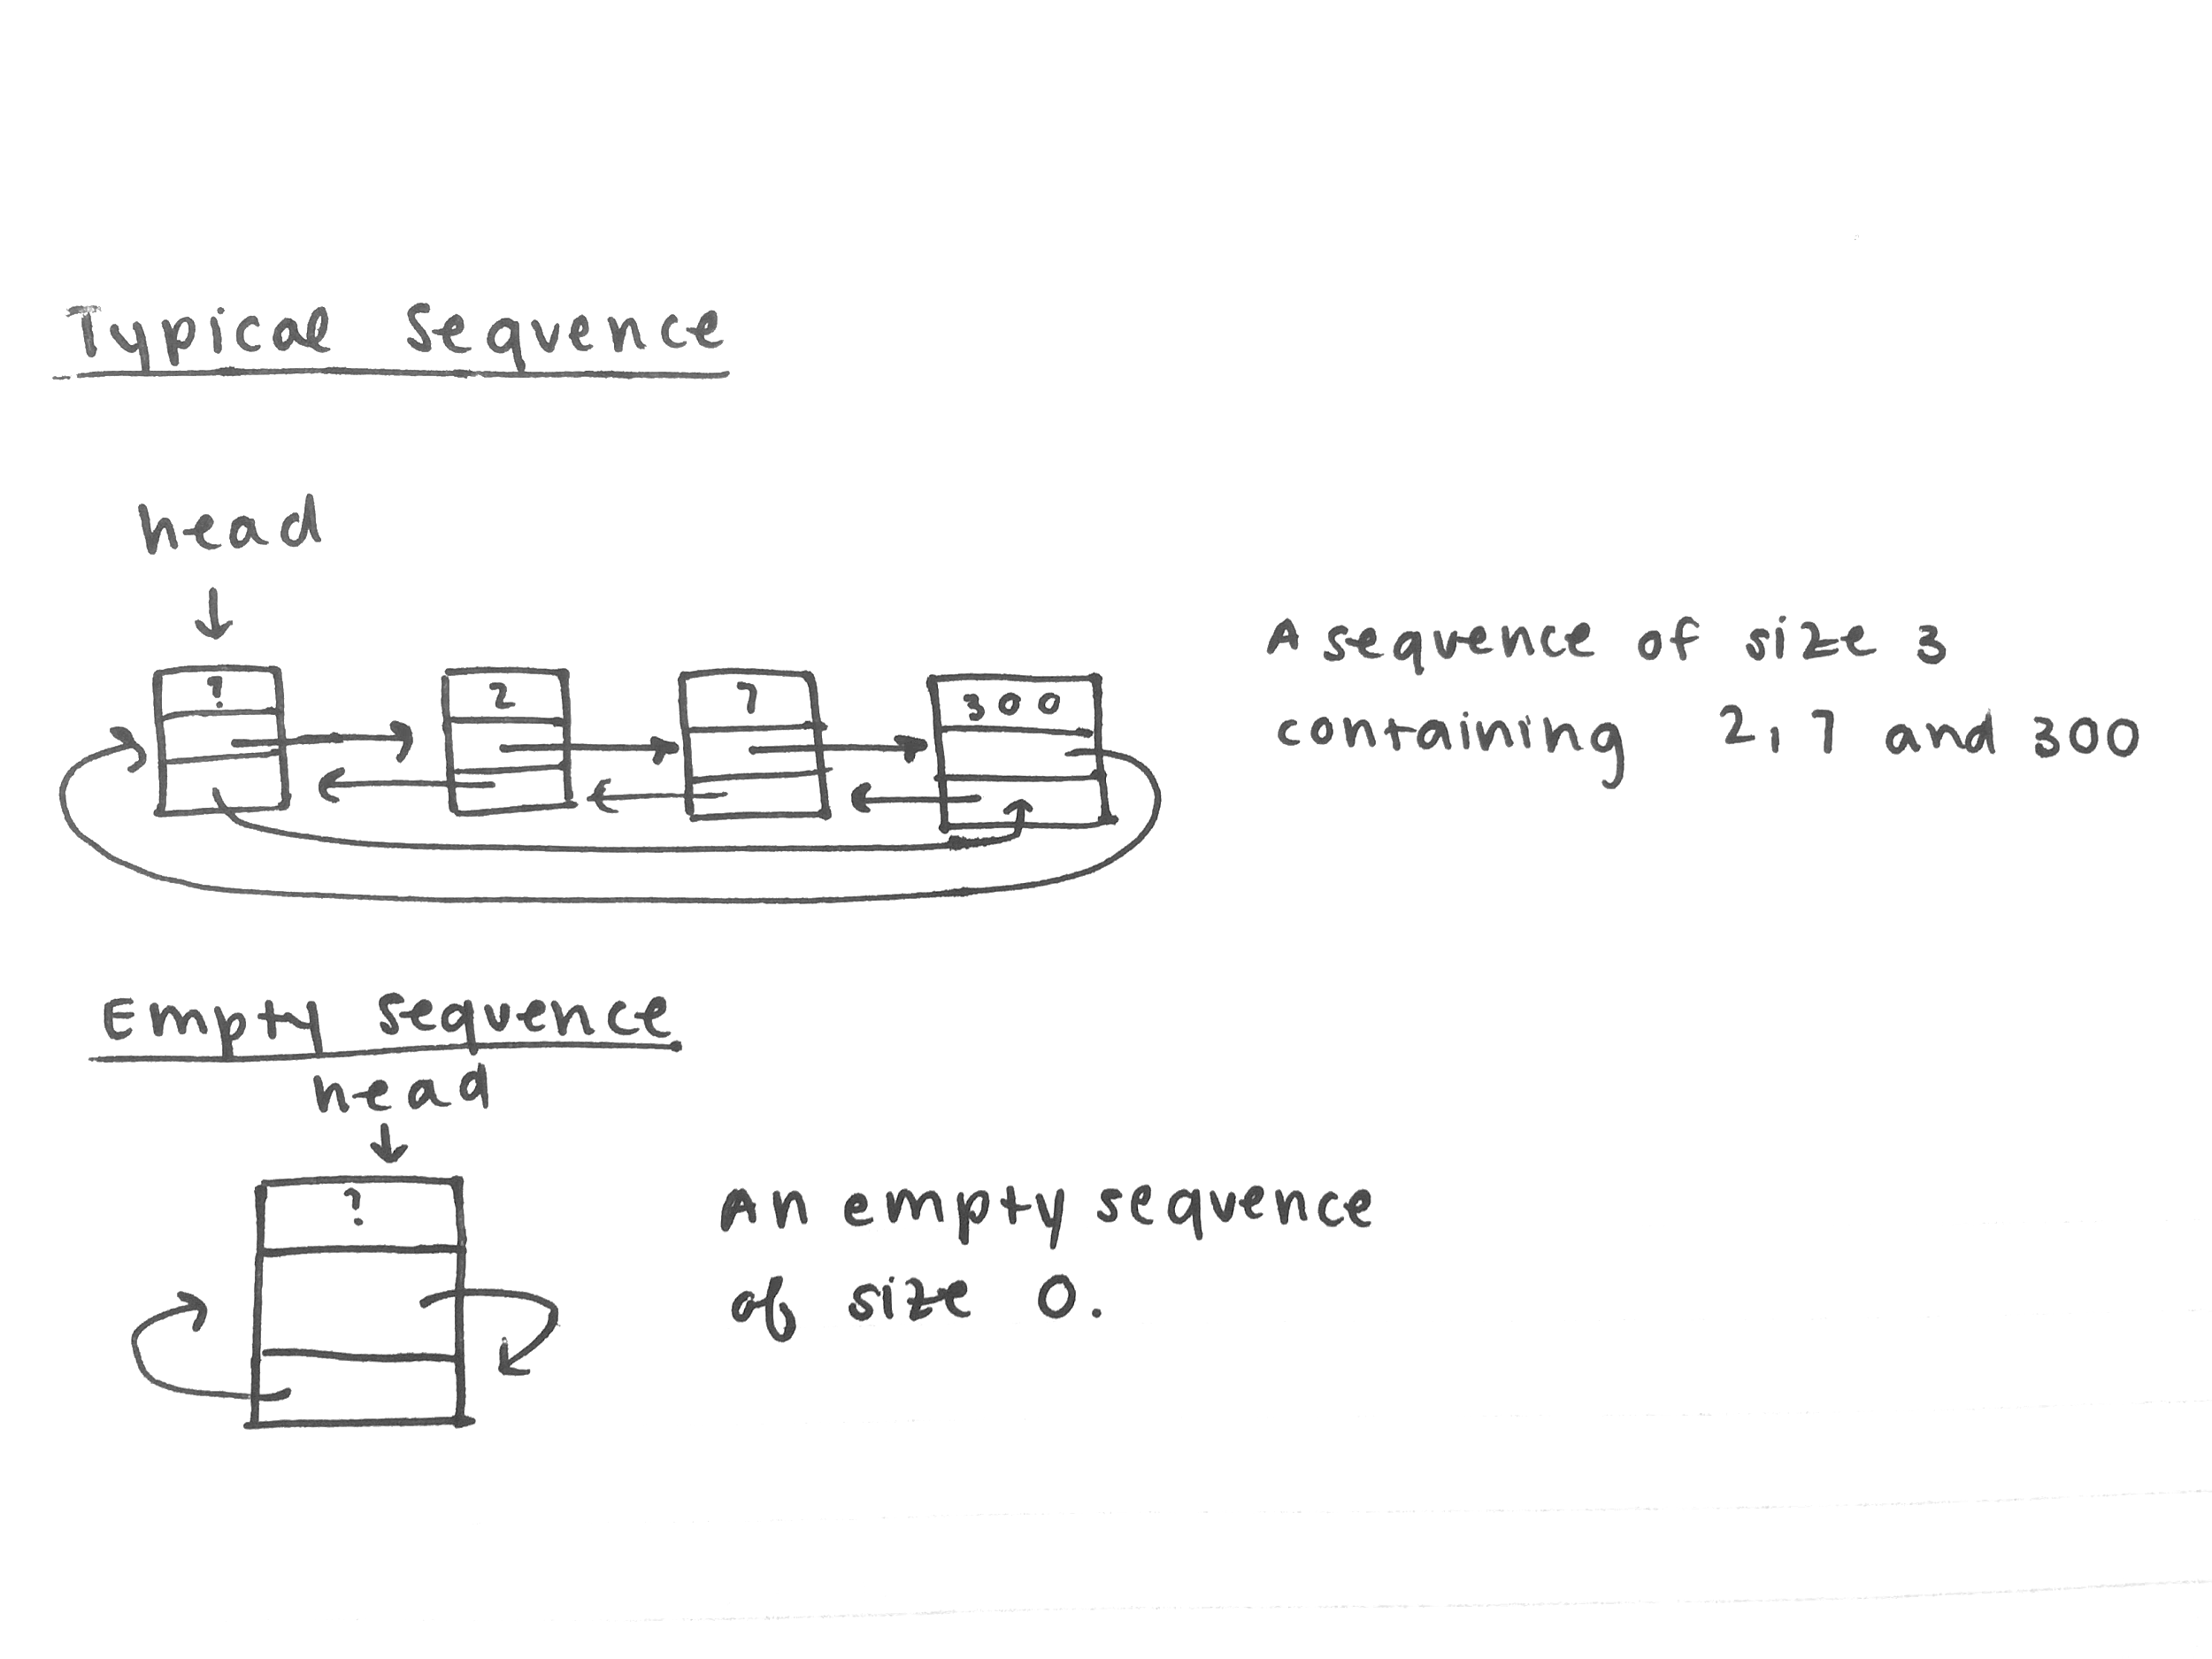 Typical Sequence
head
? 2 7 300
A sequence of size 3
containing 2, 7 and 300
Empty Sequence
head
?
An empty sequence
of size 0.